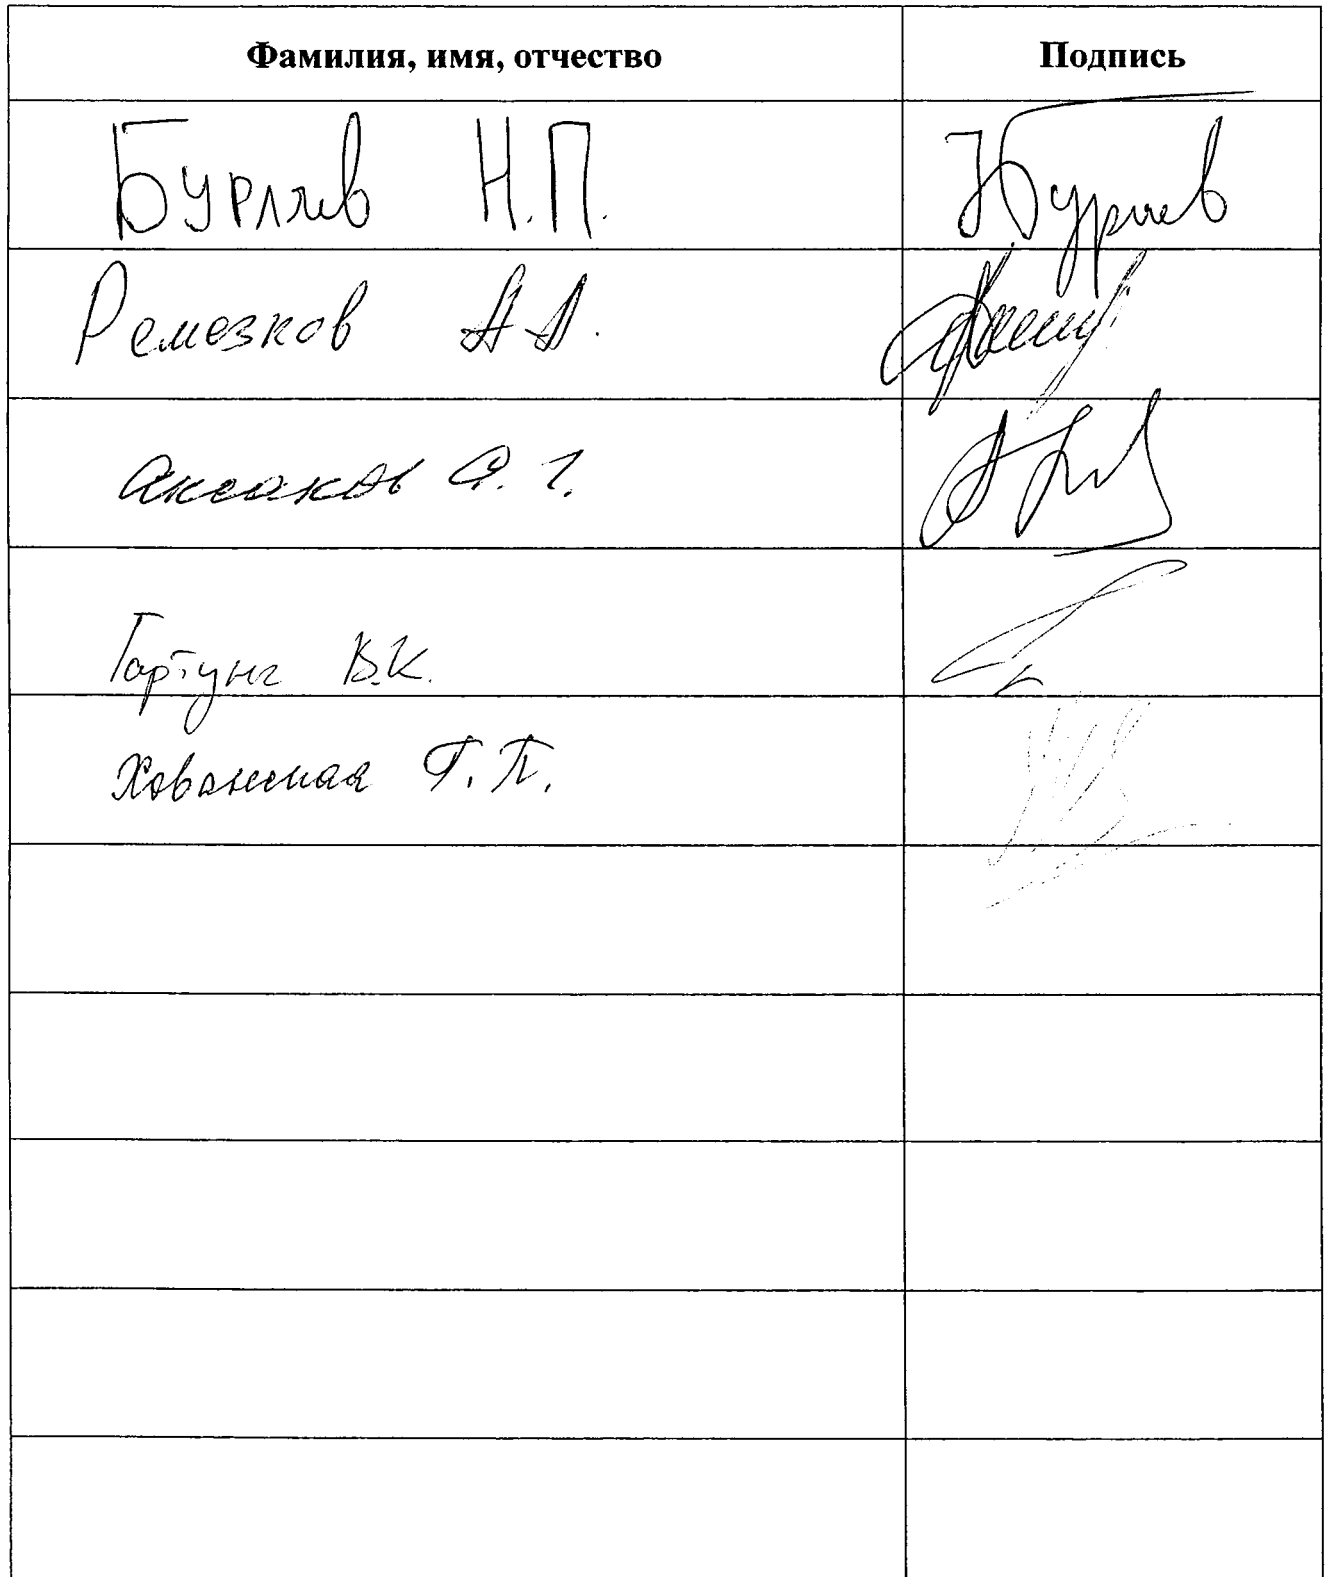 Фамилия, имя, отчество Подпись
Бурляев Н.П.
Ремезков А.А.
Аксаков А.Г.
Гартунг В.К.
Хованская Г.П.